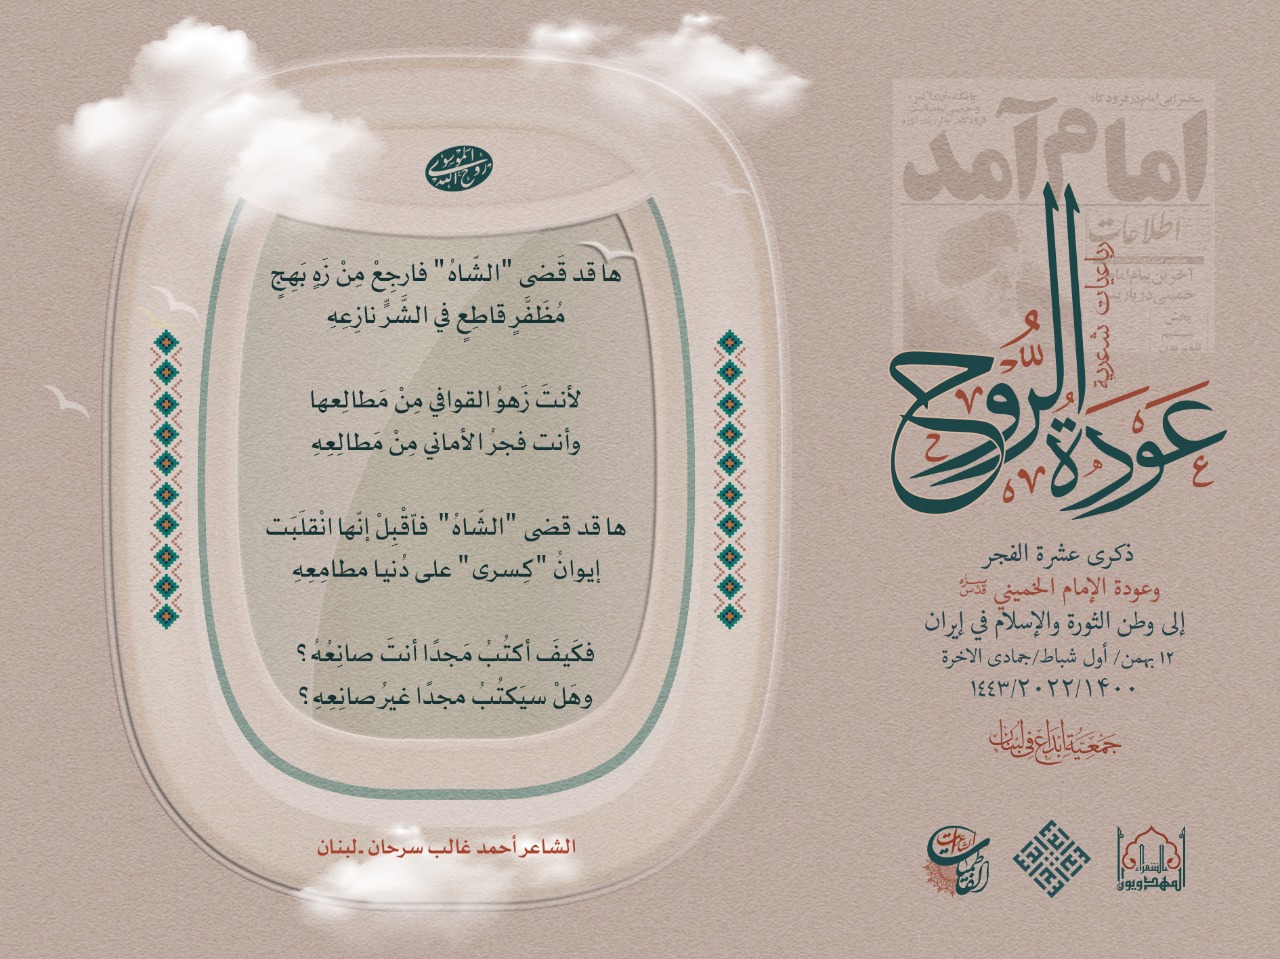 امام آمد
اطلاعات
رباعيات شعرية
عودة الرّوح
ذكرى عشرة الفجر
وعودة الإمام الخميني قدّس سرّه
إلى وطن الثورة والإسلام في إيران
١٢ بهمن/ أول شباط/جمادى الاخرة
١۴٠٠/٢٠٢٢/١٤٤٣
جمعيّة إبداع في لبنان
روح الله الموسوي
ها قد قَضى "الشّاهُ" فارجِعْ مِنْ زَهٍ بَهِجٍ
مُظَفَّرٍ قاطِعٍ في الشَّرِّ نازِعِهِ
لأنتَ زَهوُ القوافي مِنْ مَطالِعها
وأنت فجرُ الأماني مِنْ مَطالِعِهِ
ها قد قضى "الشّاهُ" فاَقْبِلْ إنّها انْقلَبَت
إيوانُ "كِسرى" على دُنيا مطامِعِهِ
فكَيفَ أكتُبُ مَجدًا أنتَ صانِعُهُ؟
وهَلْ سيَكتُبُ مجدًا غيرُ صانِعِهِ؟
الشاعر أحمد غالب سرحان ـ لبنان
الشعراء المهدويون